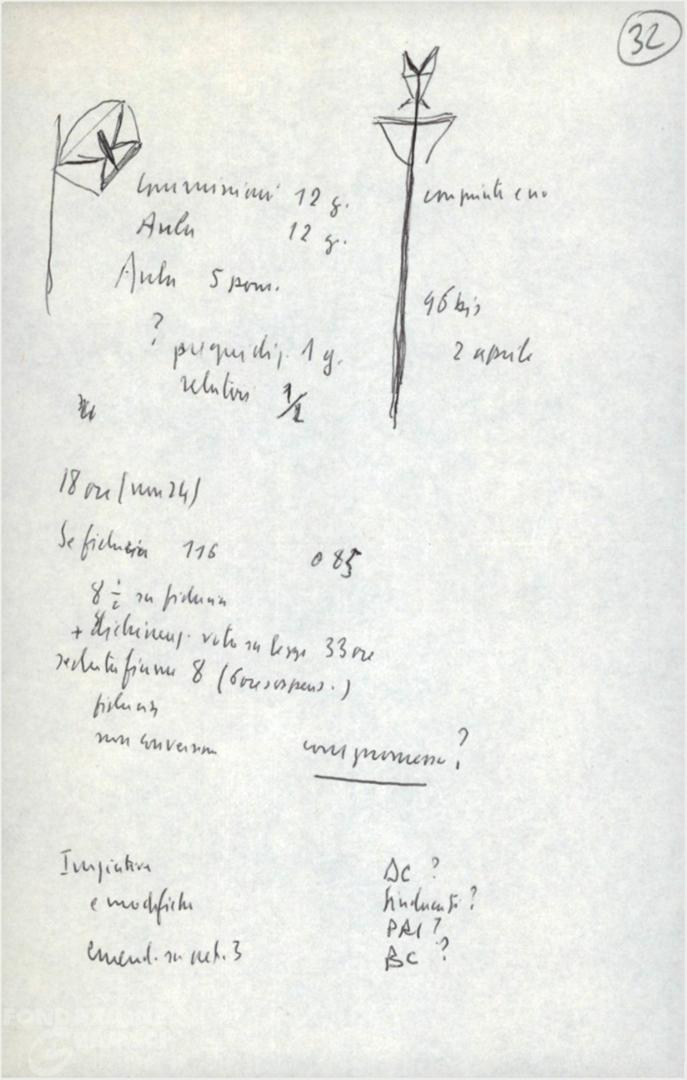 32
Commissioni 12 g.
Aula 12 g.
Aula 5 pom.
? pregiudiz. 1 g.
relatori 1/2
96 bis
2 aprile
18 ore (non 24)
Se fiducia 116
085
8 1/2 su fiducia
+ dichiaraz. voto su legge 33 ore
seduta fiume 8 (6 ore sospens.)
fiducia
non conversione
compromesso?
Iniziativa
e modifiche
emend. su art. 3
DC ?
Sindacati ?
PRI ?
BC ?
FONDAZIONE
GRAMSCI